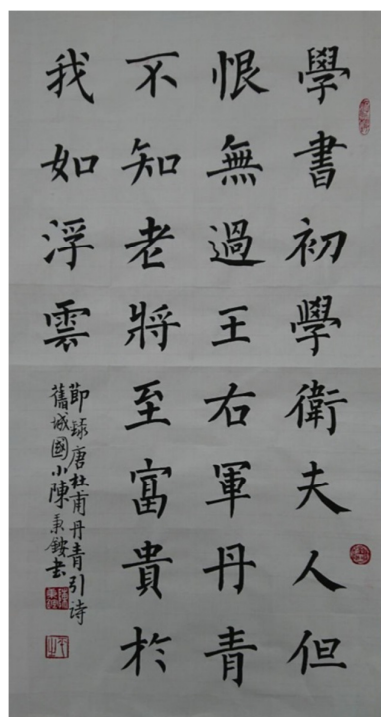 學書初學衛夫人但
恨無過王右軍丹青
不知老將至富貴於
我如浮雲
節錄唐杜甫丹青引詩
舊城國小陳秉